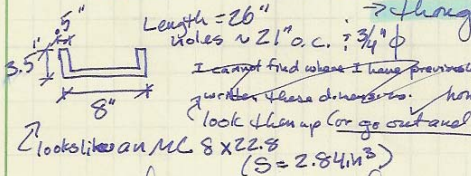 .5"
Length = 26"
→ thong
Holes ~ 21" o.c. ; 3/4" ϕ
3.5"
I cannot find where I have previous
written these dimensions.
8"
look them up (or go out and
looks like an MC 8 x 22.8
(S = 2.84 in³)